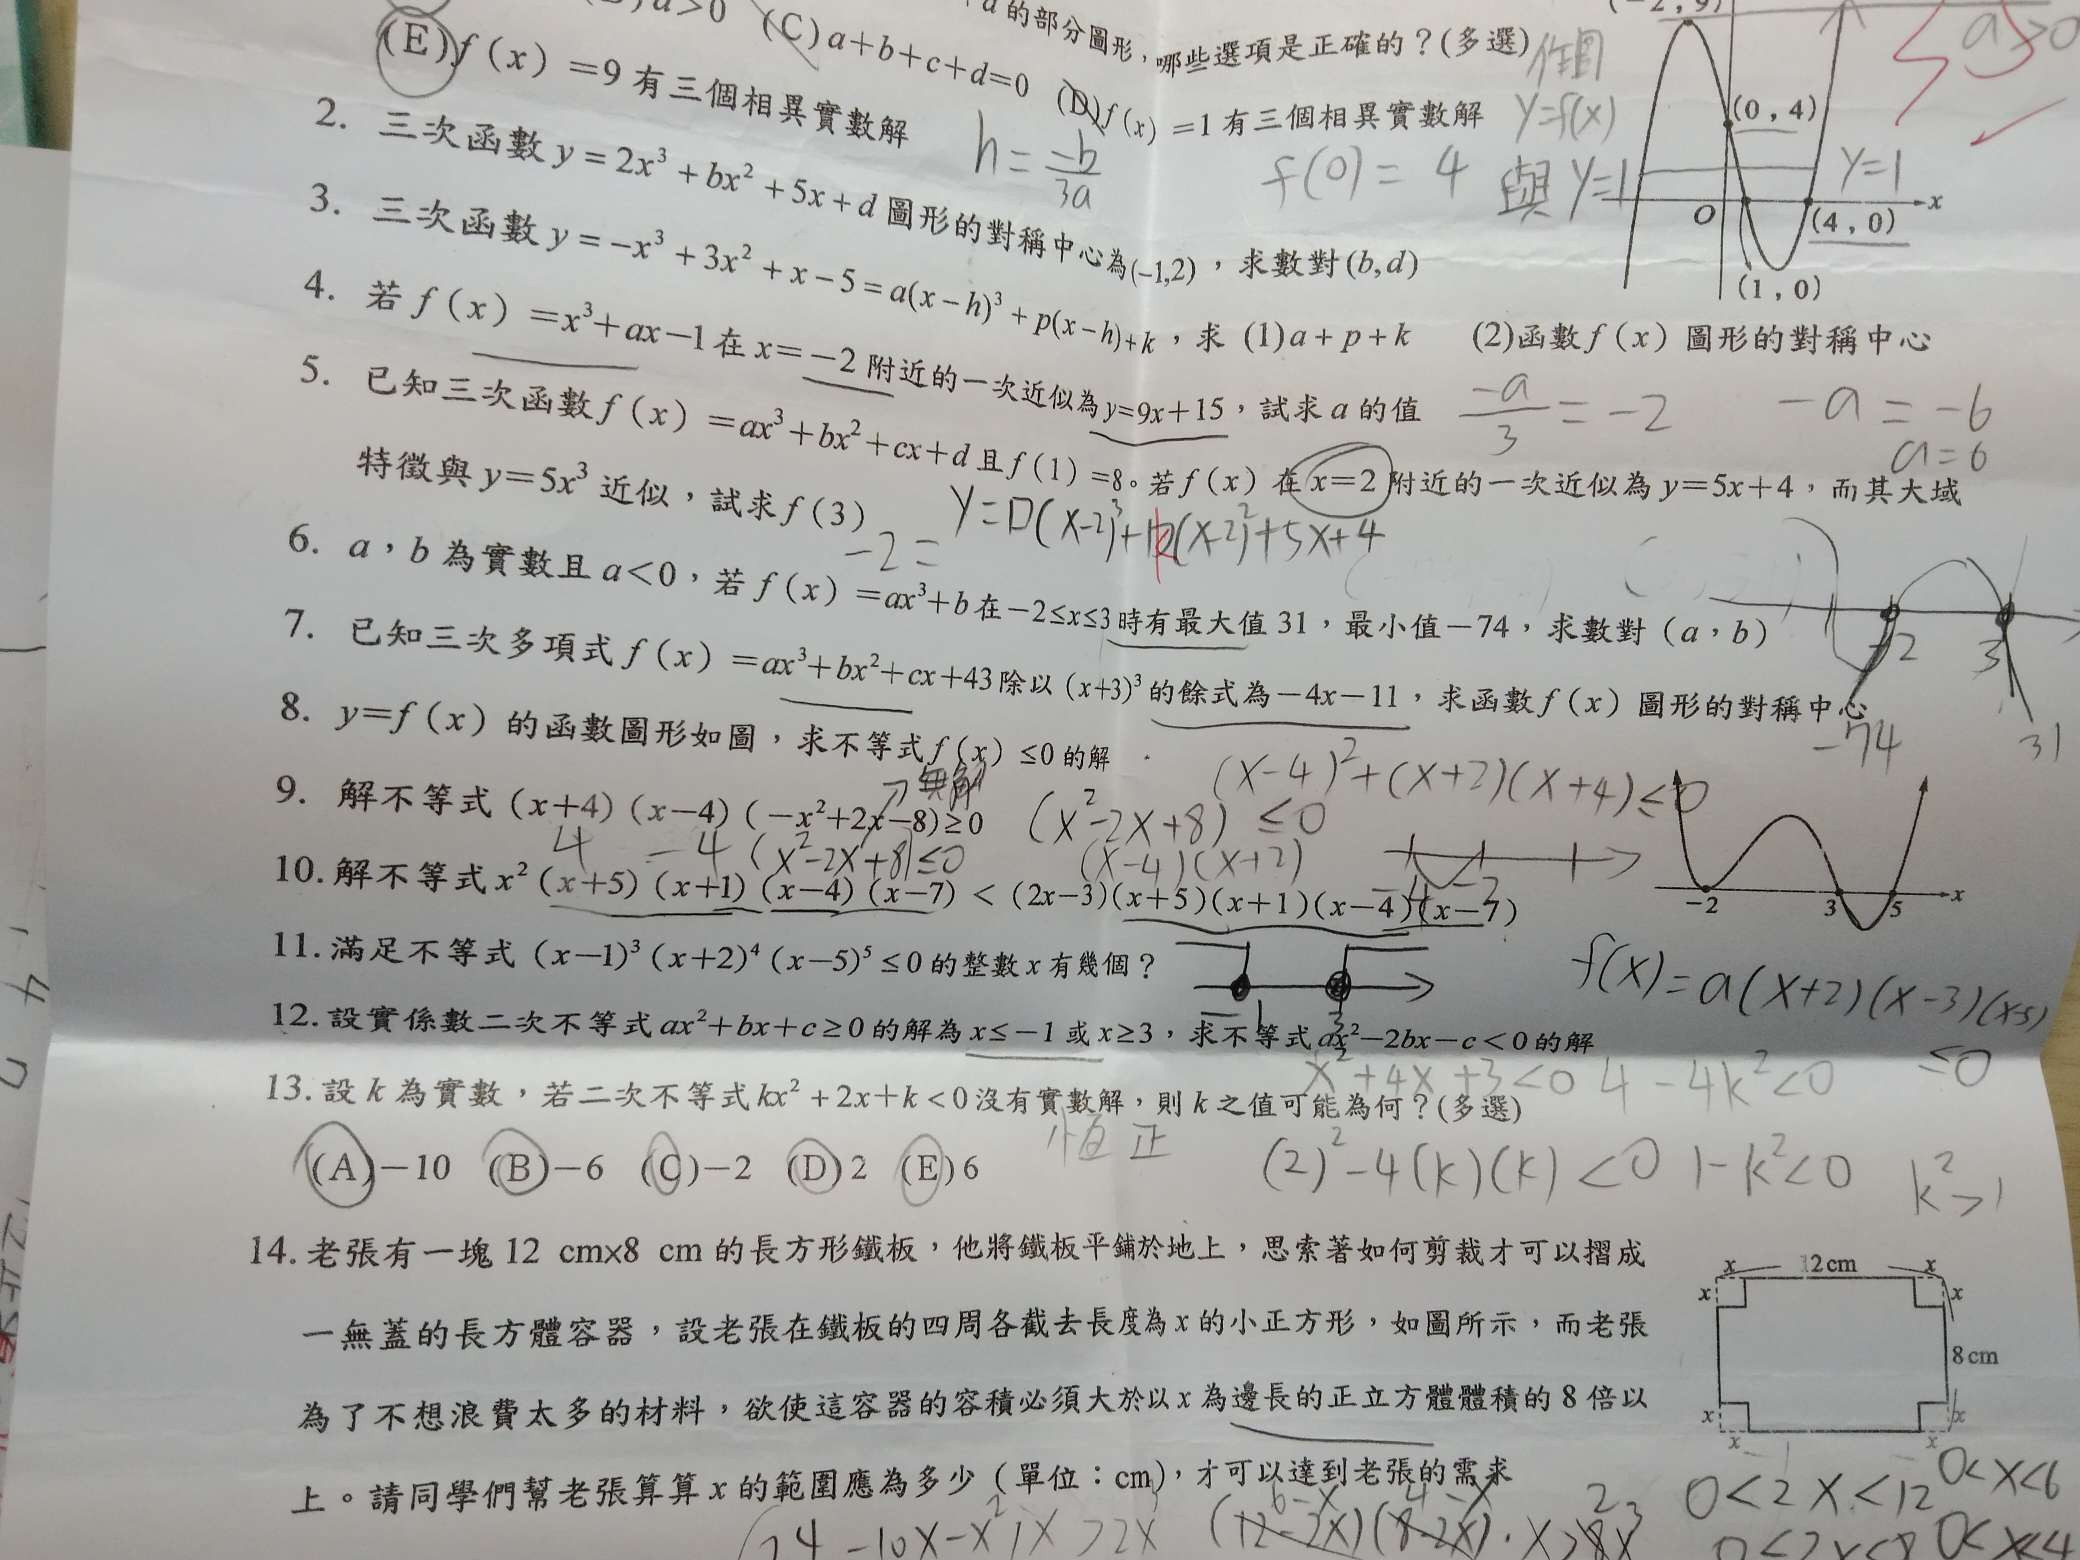 a>0 (C) a+b+c+d=0 的部分圖形，哪些選項是正確的？(多選)
(D) f(x)=1有三個相異實數解
(E) f(x)=9有三個相異實數解
作圖
y=f(x)
與y=1
f(0)=4
h=-b/3a
a>0
(-2,9)
(0,4)
y=1
O
x
(4,0)
(1,0)
2. 三次函數 y=2x³+bx²+5x+d 圖形的對稱中心為(-1,2)，求數對(b,d)
3. 三次函數 y=-x³+3x²+x-5=a(x-h)³+p(x-h)+k，求 (1)a+p+k (2)函數f(x)圖形的對稱中心
4. 若f(x)=x³+ax-1在x=-2附近的一次近似為y=9x+15，試求a的值
-a/3=-2
-a=-6
a=6
5. 已知三次函數f(x)=ax³+bx²+cx+d且f(1)=8。若f(x)在x=2附近的一次近似為y=5x+4，而其大域
特徵與y=5x³近似，試求f(3)
-2=
6. a，b為實數且a<0，若f(x)=ax³+b在-2≤x≤3時有最大值31，最小值-74，求數對(a，b)
-2
3
-74
31
7. 已知三次多項式f(x)=ax³+bx²+cx+43除以(x+3)³的餘式為-4x-11，求函數f(x)圖形的對稱中心
8. y=f(x)的函數圖形如圖，求不等式f(x)≤0的解
-2 3 5 x
f(x)=a(x+2)(x-3)(x-5)
≤0
無解
(x-4)²+(x+2)(x+4)≤0
9. 解不等式(x+4)(x-4)(-x²+2x-8)≥0
(x²-2x+8)≤0
4 -4 (x²-2x+8)≤0
(x-4)(x+2)
10. 解不等式x²(x+5)(x+1)(x-4)(x-7)<(2x-3)(x+5)(x+1)(x-4)(x-7)
11. 滿足不等式(x-1)³(x+2)⁴(x-5)⁵≤0的整數x有幾個？
12. 設實係數二次不等式ax²+bx+c≥0的解為x≤-1或x≥3，求不等式ax²-2bx-c<0的解
x²+4x+3<0
4-4k²<0
13. 設k為實數，若二次不等式kx²+2x+k<0沒有實數解，則k之值可能為何？(多選)
恆正
(A)-10 (B)-6 (C)-2 (D)2 (E)6
(2)²-4(k)(k)<0
1-k²<0
k²>1
14. 老張有一塊12 cm×8 cm的長方形鐵板，他將鐵板平鋪於地上，思索著如何剪裁才可以摺成
一無蓋的長方體容器，設老張在鐵板的四周各截去長度為x的小正方形，如圖所示，而老張
為了不想浪費太多的材料，欲使這容器的容積必須大於以x為邊長的正立方體體積的8倍以
上。請同學們幫老張算算x的範圍應為多少(單位：cm)，才可以達到老張的需求
x 12cm x
x x
8cm
x x
x x
0<2x<12
0<x<6
0<2x<8
0<x<4
6-x 4-x 2
(12-2x)(8-2x)·x>8x³